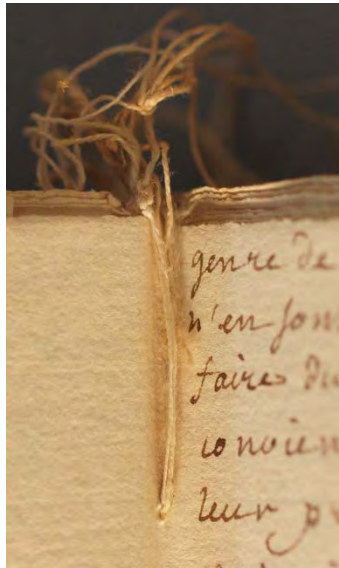 genre de
n'en son
faires du
convien
leur p